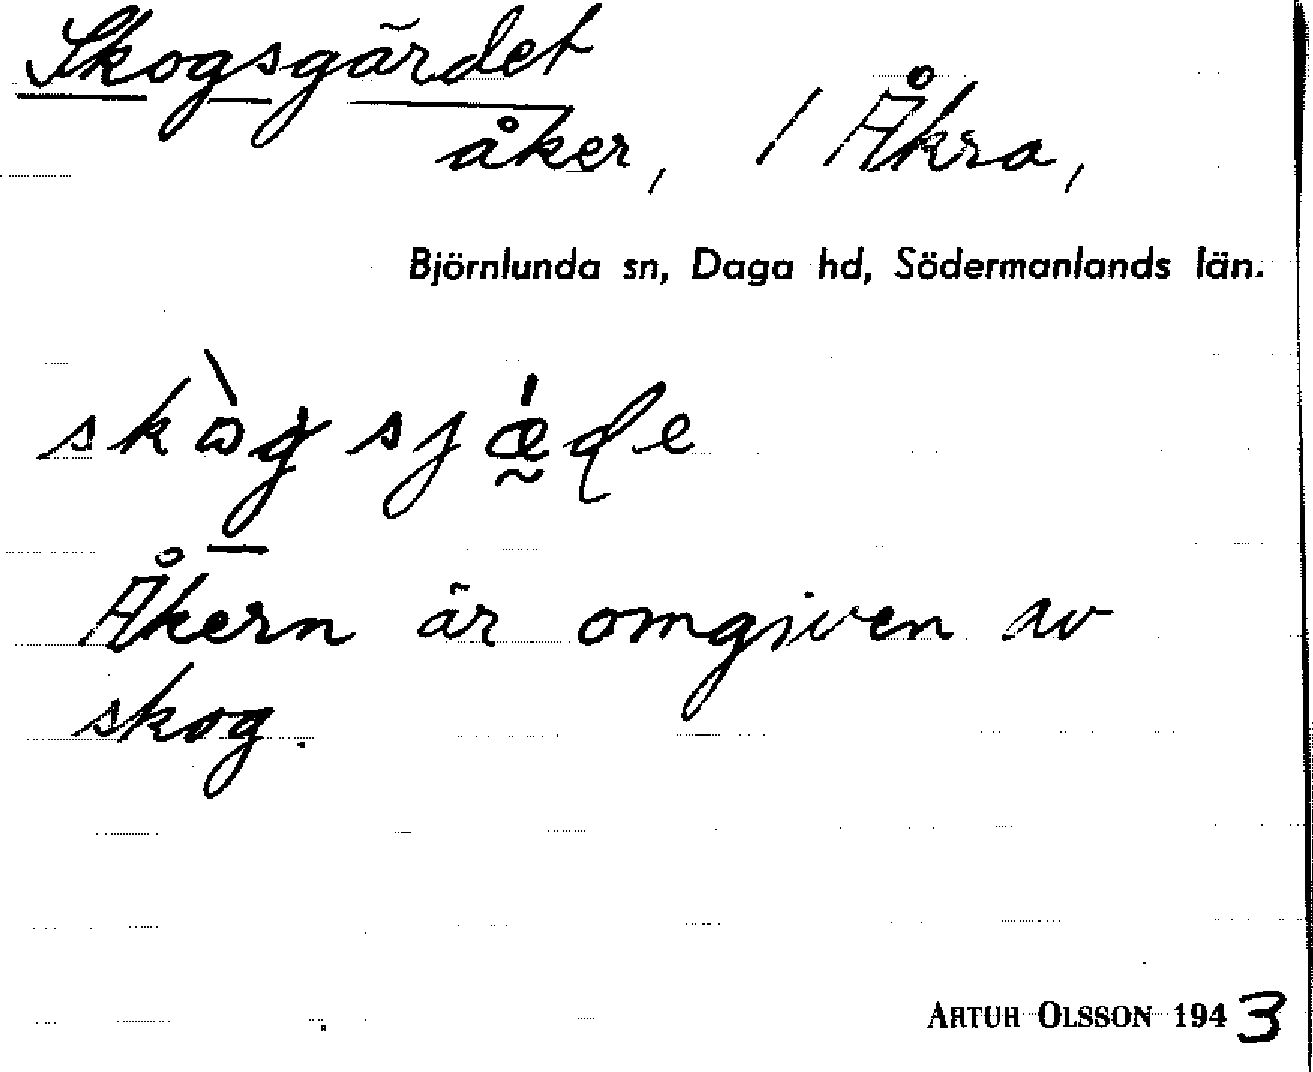 Skogsgärdet
åker, / Åkra,
Björnlunda sn, Daga hd, Södermanlands län.
Åkern är omgiven av
skog.
ARTUR OLSSON 1943